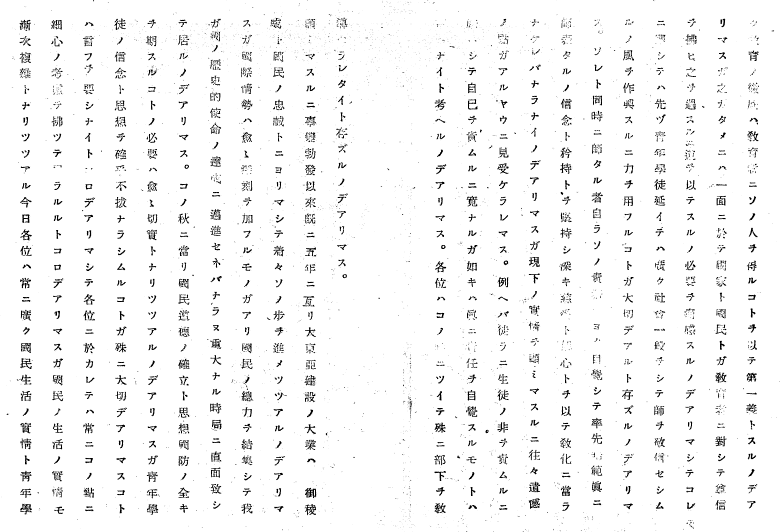 育ノ振興ハ教育者ニソノ人ヲ得ルコトヲ以テ第一義トスルノデア
リマスガ之ガタメニハ一面ニ於テ國家ト國民トガ教育者ニ對シテ尊信
ヲ拂ヒ之ヲ遇スルニ道ヲ以テスルノ必要ヲ痛感スルノデアリマシテコレ
ニ關シテハ先ヅ青年學徒延イテハ廣ク社會一般ヲシテ師ヲ敬信セシム
ルノ風ヲ作興スルニ力ヲ用フルコトガ大切デアルト存ズルノデアリマ
ス。ソレト同時ニ師タル者自ラソノ責 自覺シテ率先垂範眞ニ
師表タルノ信念ト矜持トヲ堅持シ深キ ト 心トヲ以テ教化ニ當ラ
ナケレバナラナイノデアリマスガ現下ノ實情ヲ顧ミマスルニ往々遺憾
ノ點ガアルヤウニ見受ケラレマス。例ヘバ徒ラニ生徒ノ非ヲ責ムルニ
シテ自己ヲ責ムルニ寬ナルガ如キハ眞ニ責任ヲ自覺スルモノトハ
ナイト考ヘルノデアリマス。各位ハコノ ニツイテ殊ニ部下ヲ教
ランタイト存ズルノデアリマス。
顧ミマスルニ事變勃發以來既ニ五年ニ亙リ大東亞建設ノ大業ハ 御稜
威ト國民ノ忠誠トニヨリマシテ着々ソノ步ヲ進メツツアルノデアリマ
スガ國際情勢ハ愈々深刻ヲ加フルモノガアリ國民ノ總力ヲ結集シテ我
ガ國ノ歷史的使命ノ達成ニ邁進セネバナラヌ重大ナル時局ニ直面致シ
テ居ルノデアリマス。コノ秋ニ當リ國民道德ノ確立ト思想國防ノ全キ
ヲ期スルコトノ必要ハ愈々切實トナリツツアルノデアリマスガ青年學
徒ノ信念ト思想ヲ確乎不拔ナラシムルコトガ殊ニ大切デアリマスコト
ハ言フヲ要シナイトコロデアリマシテ各位ニ於カレテハ常ニコノ點ニ
細心ノ考慮ヲ拂ツテヲラルルトコロデアリマスガ國民ノ生活ノ實情モ
漸次複雜トナリツツアル今日各位ハ常ニ廣ク國民生活ノ實情ト青年學